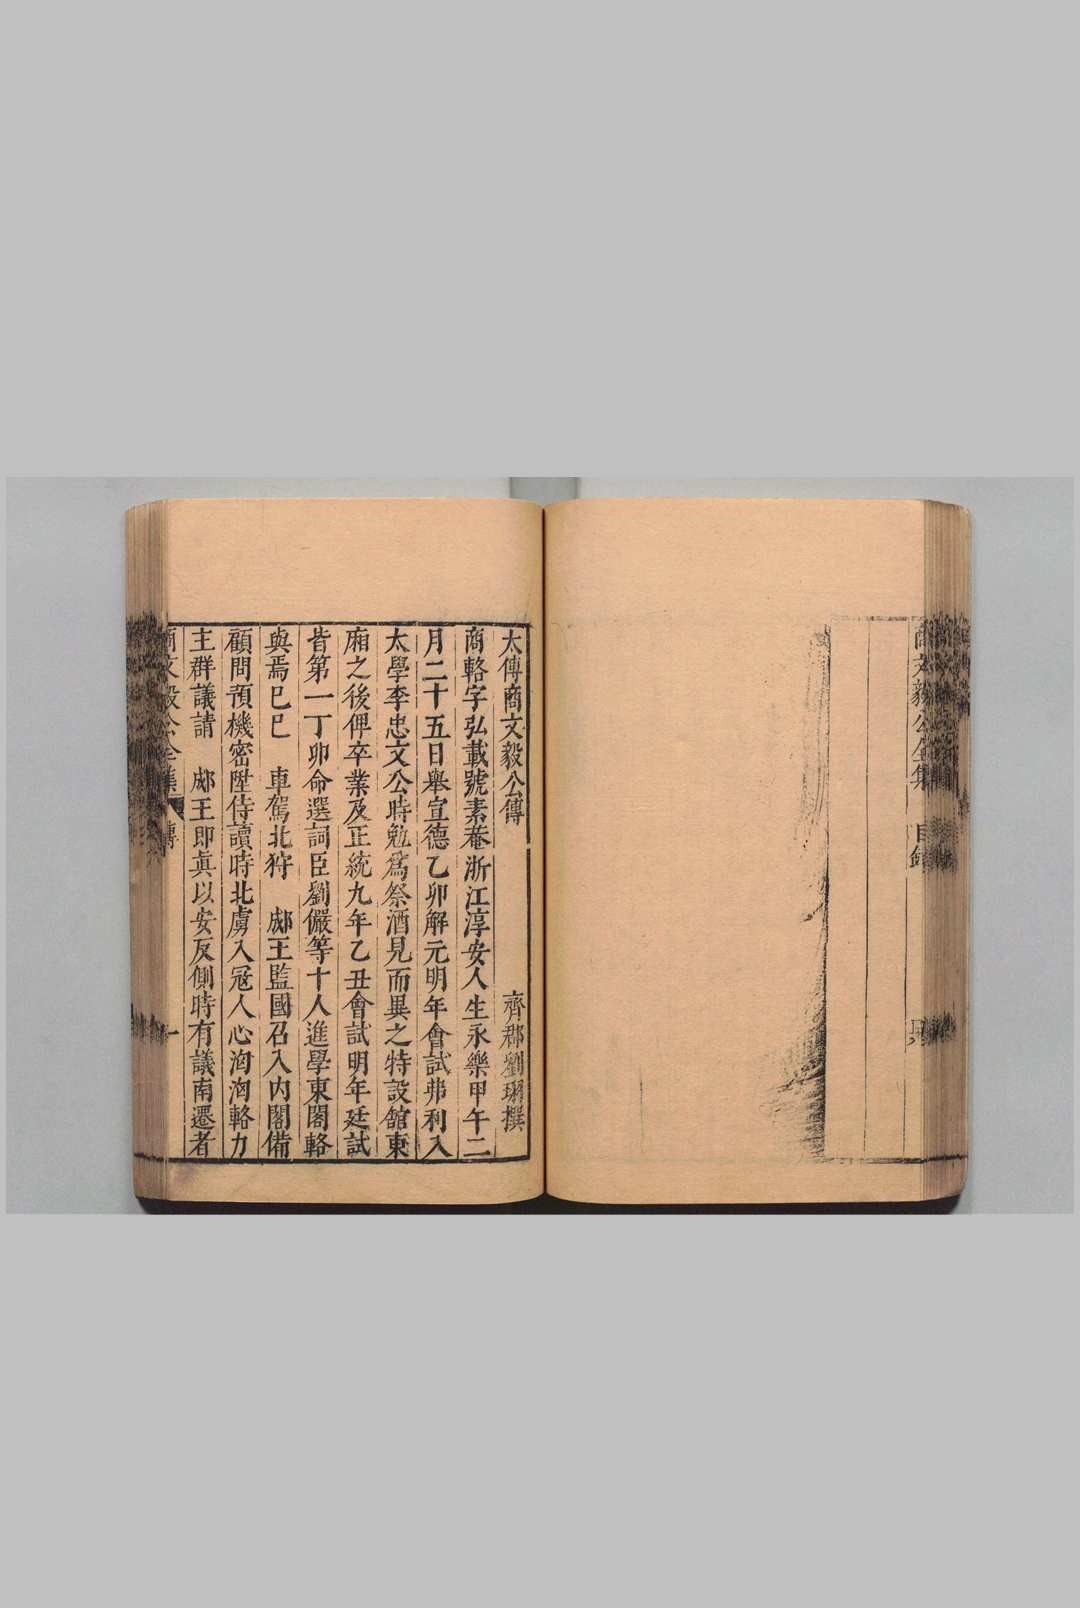 商文毅公全集 目錄
太傅商文毅公傳
齊郡劉珝撰
商輅字弘載號素菴浙江淳安人生永樂甲午二
月二十五日舉宣德乙卯解元明年會試弗利入
太學李忠文公時勉爲祭酒見而異之特設舘東
廂之後俾卒業及正統九年乙丑會試明年廷試
皆第一丁卯命選詞臣劉儼等十人進學東閣輅
與焉巳巳 車駕北狩 郕王監國召入内閣備
顧問預機密陞侍讀時北虜入冦人心洶洶輅力
主群議請 郕王即眞以安反側時有議南遷者
商文毅公全集 傳 一